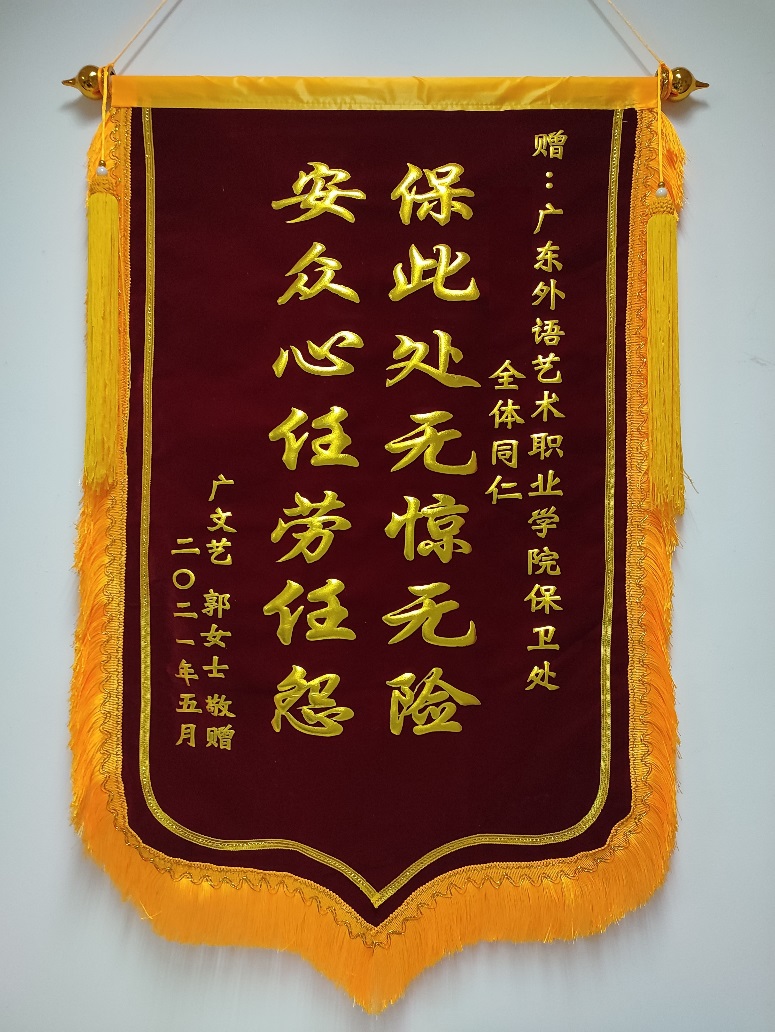 赠：广东外语艺术职业学院保卫处
全体同仁
保此处无惊无险
安众心任劳任怨
广文艺 郭女士 敬赠
二〇二一年五月